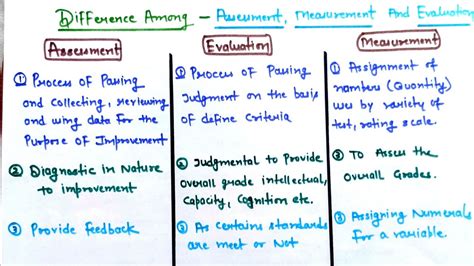 Difference Among - Assessment, Measurement And Evaluation
Assessment
① Process of Pasing
and Collecting, reviewing
and using data for the
Purpose of Improvement
② Diagnostic in Nature
to improvement
③ Provide feedback
Evaluation
① Process of Pasing
Judgment on the basis
of define Criteria
② Judgmental to Provide
overall grade intellectual,
Capacity, Cognition etc.
③ As Certains standards
are meet or Not
Measurement
① Assignment of
numbers (Quantity)
by variety of
test, rating scale.
② To Assess the
overall Grades.
③ Assigning Numerals
for a variable.